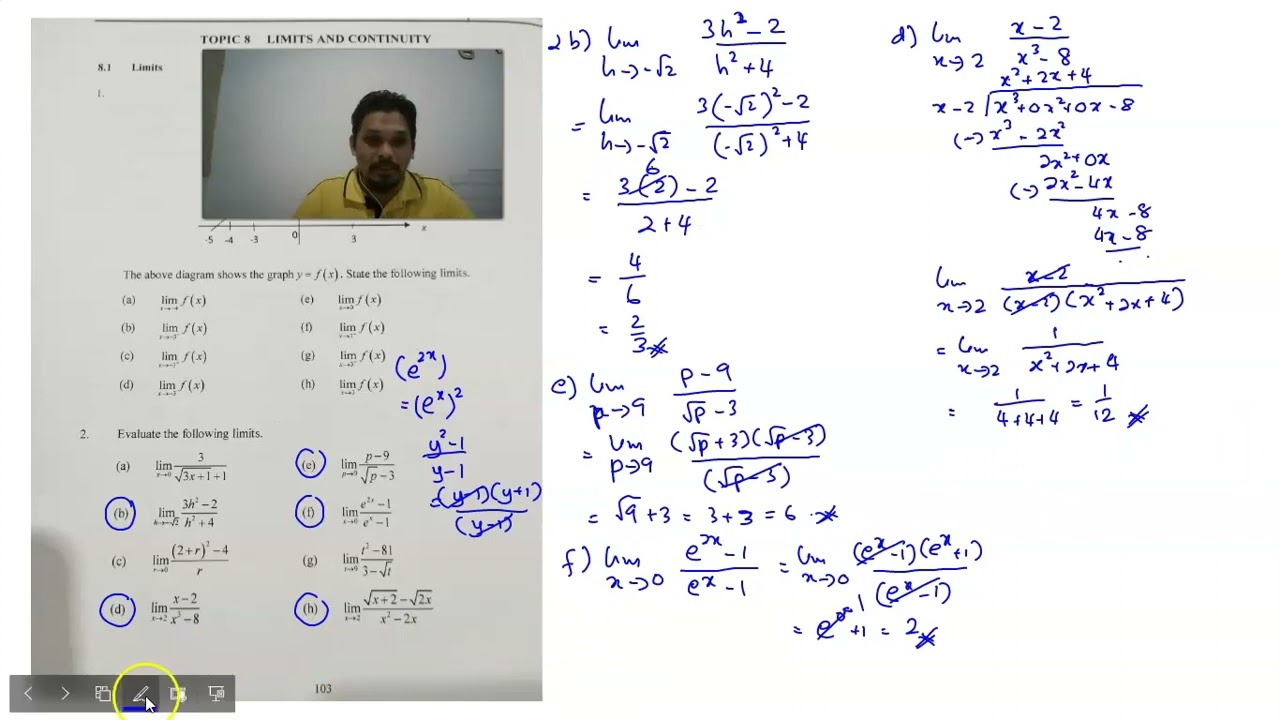 TOPIC 8 LIMITS AND CONTINUITY
8.1 Limits
1.
-5 -4 -3 0 3 x
The above diagram shows the graph y = f(x). State the following limits.
(a) lim f(x) (e) lim f(x)
(b) lim f(x) (f) lim f(x)
(c) lim f(x) (g) lim f(x)
(d) lim f(x) (h) lim f(x)
(e^2x)
= (e^x)^2
2. Evaluate the following limits.
(a) lim x→0 3/(√(3x+1)+1) (e) lim p→9 (p−9)/(√p−3)
(b) lim h→−√2 (3h²−2)/(h²+4) (f) lim x→0 (e^2x−1)/(e^x−1)
(c) lim r→0 ((2+r)²−4)/r (g) lim t→9 (t²−81)/(3−√t)
(d) lim x→2 (x−2)/(x³−8) (h) lim x→2 (√(x+2)−√(2x))/(x²−2x)
(y²−1)/(y−1)
= (y−1)(y+1)/(y−1)
103
2b) lim h→−√2 (3h²−2)/(h²+4)
= lim h→−√2 (3(−√2)²−2)/((−√2)²+4)
6
= (3(2)−2)/(2+4)
= 4/6
= 2/3
e) lim p→9 (p−9)/(√p−3)
= lim p→9 (√p+3)(√p−3)/(√p−3)
= √9+3 = 3+3 = 6
f) lim x→0 (e^2x−1)/(e^x−1) = lim x→0 (e^x−1)(e^x+1)/(e^x−1)
= e^0 1 +1 = 2
d) lim x→2 (x−2)/(x³−8)
x²+2x+4
x−2 √x³+0x²+0x−8
(−) x³−2x²
2x²+0x
(−) 2x²−4x
4x−8
4x−8
lim x→2 (x−2)/((x−2)(x²+2x+4))
= lim x→2 1/(x²+2x+4)
= 1/(4+4+4) = 1/12